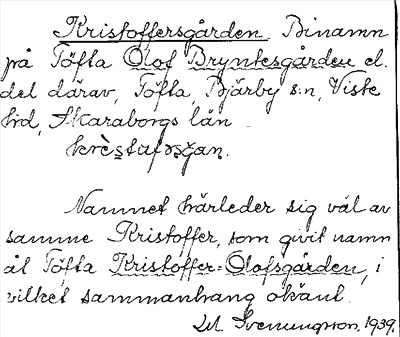 Kristoffersgården Binamn
på Töfta Olof Bryntesgården el.
del därav, Töfta, Bjärby s:n, Viste
hd, Skaraborgs län
Namnet härleder sig väl av
samme Kristoffer, som givit namn
åt Töfta Kristoffer-Olofsgården, i
vilket sammanhang okänt.
Svenungsson. 1939.